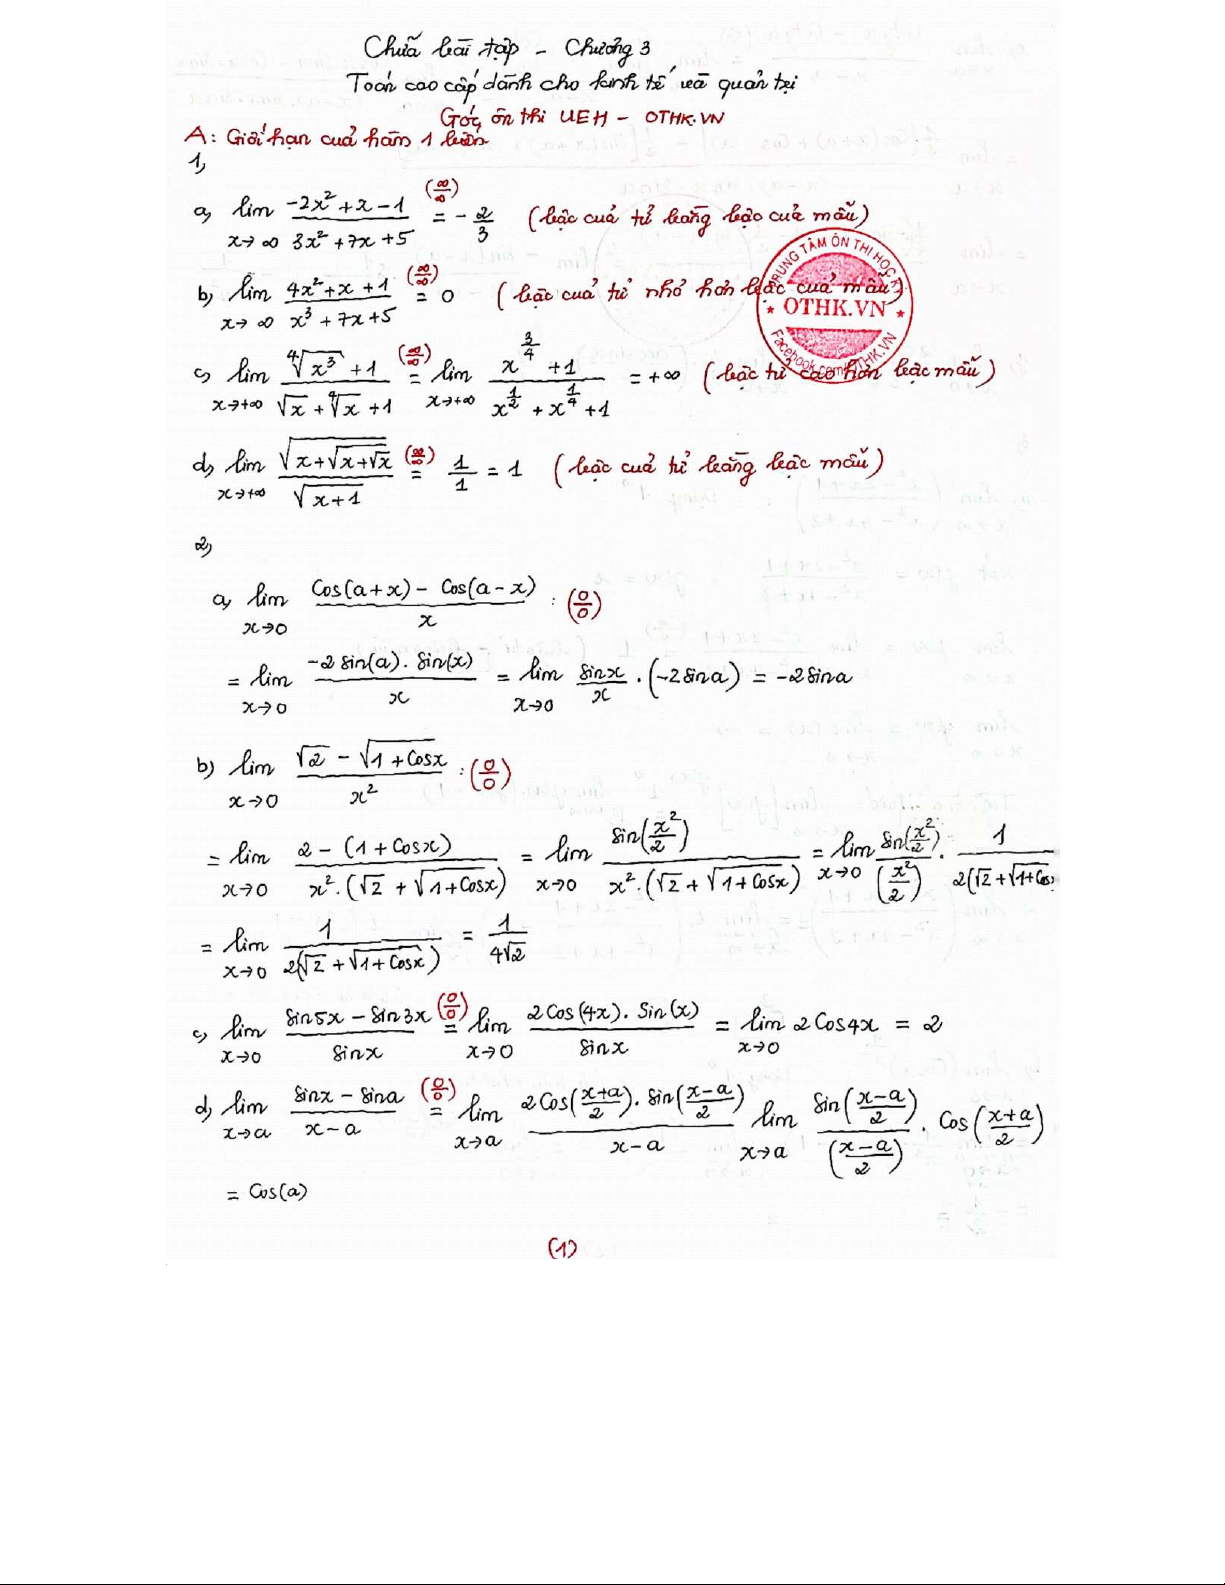 Chữa bài tập - Chương 3
Toán cao cấp dành cho kinh tế và quản trị
Góc ôn thi UEH - OTHK.VN
A: Giới hạn của hàm 1 biến
1,
a, lim x→∞ (-2x² + x - 1)/(3x² + 7x + 5) (∞/∞) = -2/3 (bậc của tử bằng bậc của mẫu)
b) lim x→∞ (4x² + x + 1)/(x³ + 7x + 5) (∞/∞) = 0 (bậc của tử nhỏ hơn bậc của mẫu)
TRUNG TÂM ÔN THI HỌC KÌ
OTHK.VN
Facebook.com/OTHK.VN
c, lim x→+∞ (⁴√x³ + 1)/(√x + ⁴√x + 1) (∞/∞) = lim x→+∞ (x^(3/4) + 1)/(x^(1/2) + x^(1/4) + 1) = +∞ (bậc tử cao hơn bậc mẫu)
d, lim x→+∞ √(x + √(x + √x))/√(x + 1) (∞/∞) = 1/1 = 1 (bậc của tử bằng bậc mẫu)
2,
a, lim x→0 (Cos(a + x) - Cos(a - x))/x : (0/0)
= lim x→0 (-2 Sin(a). Sin(x))/x = lim x→0 Sinx/x . (-2 Sina) = -2 Sina
b) lim x→0 (√2 - √(1 + Cosx))/x² : (0/0)
= lim x→0 (2 - (1 + Cosx))/(x².(√2 + √(1 + Cosx))) = lim x→0 Sin(x²/2)/(x².(√2 + √(1 + Cosx))) = lim x→0 Sin(x²/2)/(x²/2) . 1/(2(√2 + √(1+Cosx
= lim x→0 1/(2(√2 + √(1 + Cosx))) = 1/(4√2)
c, lim x→0 (Sin5x - Sin3x)/Sinx (0/0) = lim x→0 (2 Cos(4x). Sin(x))/Sinx = lim x→0 2 Cos4x = 2
d, lim x→a (Sinx - Sina)/(x - a) (0/0) = lim x→a (2Cos((x+a)/2). Sin((x-a)/2))/(x - a) lim x→a Sin((x-a)/2)/((x-a)/2) . Cos((x+a)/2)
= Cos(a)
(1)